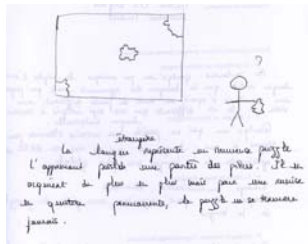 ?
étrangère
La langue représente un immense puzzle
L'apprenant possède une partie des pièces. Il en
acquiert de plus en plus mais pour une raison
la puzzle ne se terminera
jamais.